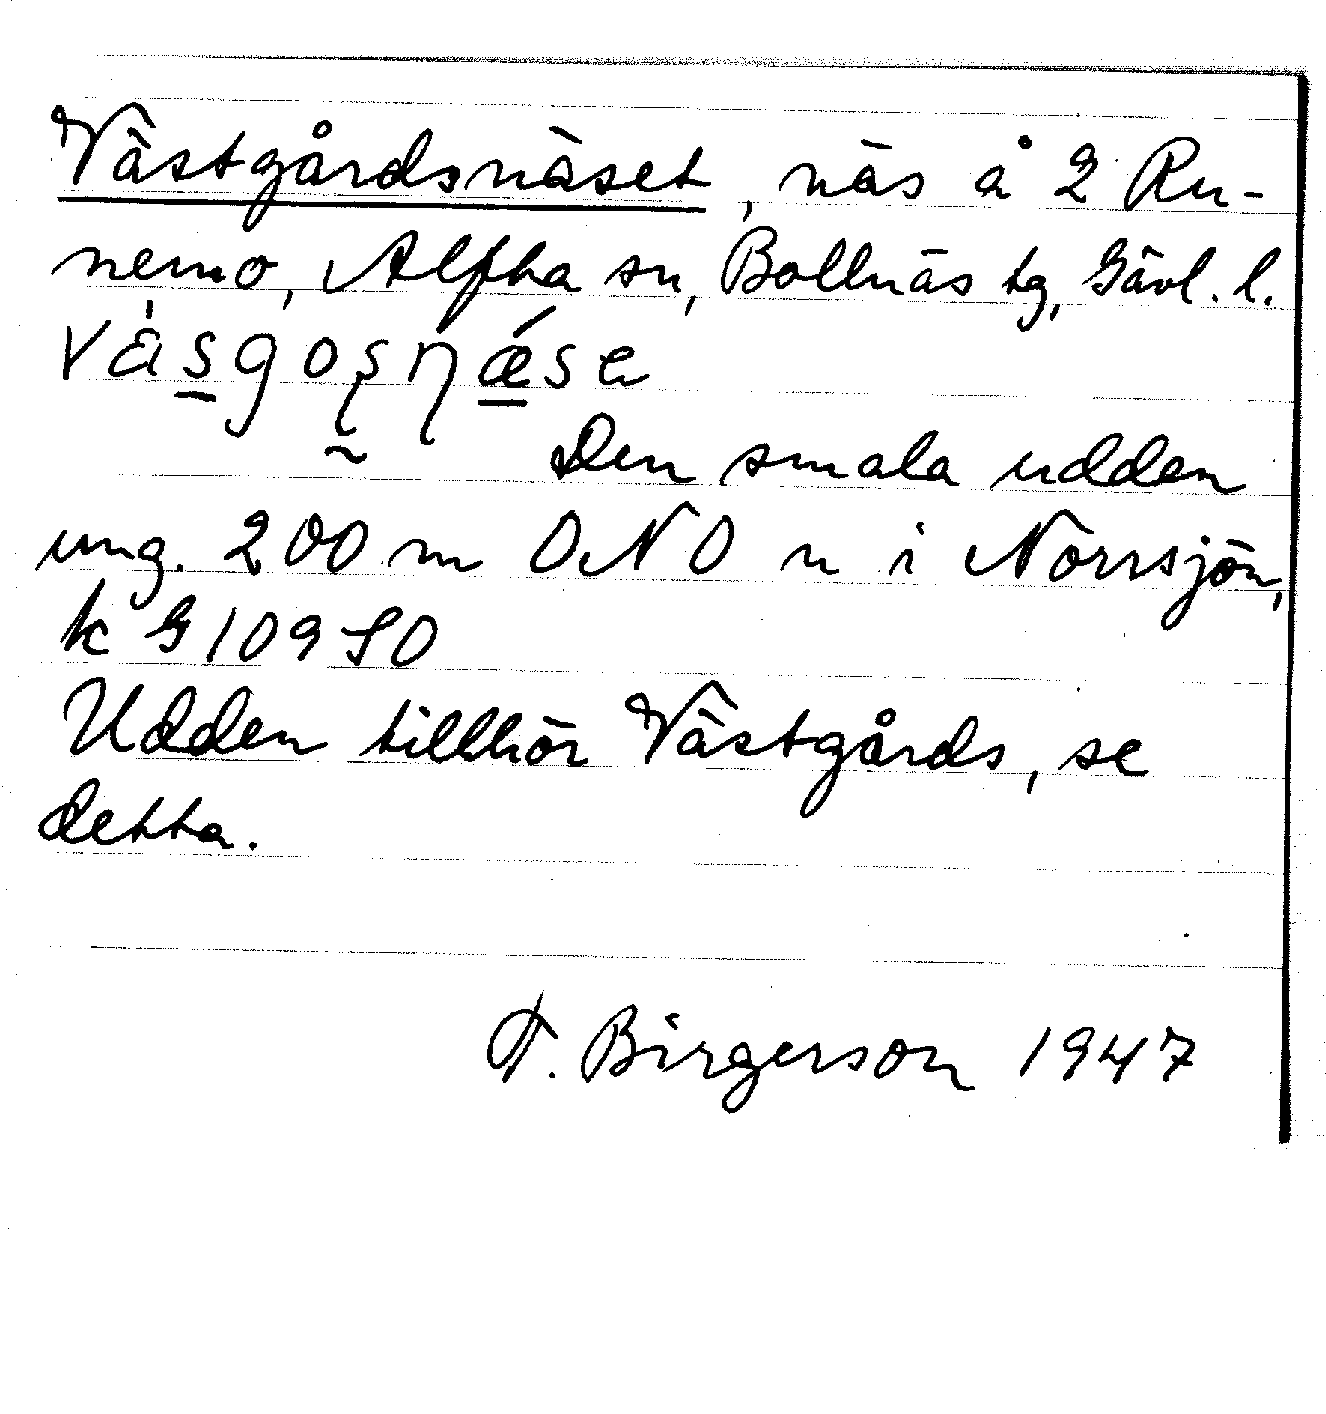 Västgårdsnäset, näs å 2 Ru-
nemo, Alfta sn, Bollnäs tg, Gävl. l.
vàs̲gosṇǽ̲se
Den smala udden
ung. 200 m ONO n i Norrsjön,
k G 109 SO
Udden tillhör Västgårds, se
detta.
F. Birgerson 1947